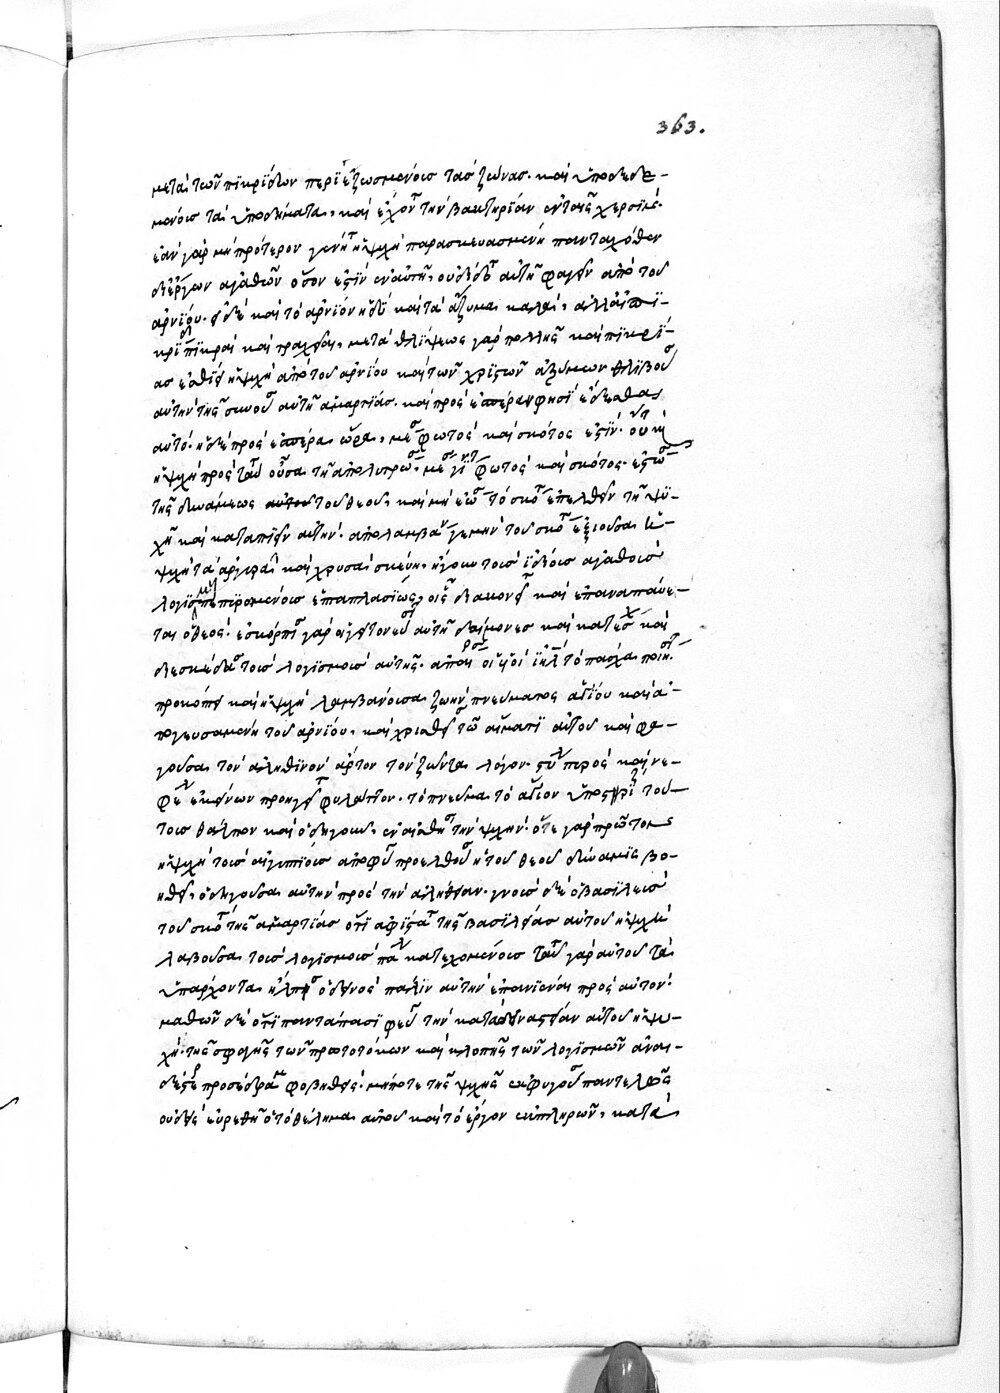 363.
μετὰ τῶν πικρίδων περιεζωσμένοις τὰς ζώνας· καὶ ὑποδεδε-
μένοις τὰ ὑποδήματα, καὶ ἔχοντ τὴν βακτηρίαν ἐν ταῖς χερσὶ μέ·
ἐὰν γὰρ μὴ πρότερον γένητ ἡ ψυχὴ παρασκευασμένη πανταχόθεν
δι' ἔργων ἀγαθῶν ὅσον ἐστὶν ἐν αὐτῇ, οὐ δίδοτ αὐτῇ φαγεῖν ἀπὸ τοῦ
ἀρνίου· εἰ δὲ καὶ τὸ ἀρνίον ἡδὺ καὶ τὰ ἄζυμα καλὰ, ἀλλ' αἱ πι-
κρίδ πικραὶ καὶ τραχεῖαι, μετὰ θλίψεως γὰρ πολλῆς καὶ πικρί-
ας ἐσθίει ἡ ψυχὴ ἀπὸ τοῦ ἀρνίου καὶ τῶν χρηστῶν ἀζύμων θλιβούσ
αὐτὴν τῆς συνούσ αὐτῇ ἁμαρτίας· καὶ πρὸς ἑσπέραν φησὶ ἔδεσθαι
αὐτό· ἡ δὲ πρὸς ἑσπέραν ὥρα, μεσ φωτὸς καὶ σκότος ἐστίν· οὕτ καὶ
ἡ ψυχὴ πρὸς ταύτ οὖσα τῇ ἀπολυτρώσ, μεσ γίνετ φωτὸς καὶ σκότος· ἑστώσ
τῆς δυνάμεως τοῦ θεοῦ, καὶ μὴ ἐώσ τὸ σκότ ἐπελθεῖν τῇ ψυ-
χῇ καὶ καταπιεῖν αὐτήν·
ψυχὴ τὰ ἀργυρᾶ καὶ χρυσᾶ σκεύη, ἤγουν τοῖς ἰδίοις ἀγαθοῖς
λογισμ πεπυρωμένοις ἑπταπλασίως, οἷς διακονεῖτ καὶ ἐπαναπαύε-
ται ὁ θεός· ἐσκόρπισ γὰρ αἱ γειτονεύσ αὐτῇ δαίμονες καὶ κατέσχ καὶ
διεσκέδασ τοὺς λογισμοὺς αὐτῆς·
προκόπτ καὶ ἡ ψυχὴ λαμβάνουσα ζωὴν πνεύματος ἁγίου καὶ ἀ-
πογευσαμένη τοῦ ἀρνίου, καὶ χρισθεῖσ τῷ αἵματι αὐτοῦ καὶ φα-
γοῦσα τὸν ἀληθινὸν ἄρτον τὸν ζῶντα λόγον· στῦλ πυρὸς καὶ νε-
φέλ ἐκείνων προηγεῖτ φυλάττον· τὸ πνεῦμα τὸ ἅγιον ὑποστηρίζει τού-
τους θάλπον καὶ ὁδηγοῦν, ἐν αἰσθήσ τὴν ψυχήν· ὅτε γὰρ πρῶτον
ἡ ψυχὴ τοὺς αἰγυπτίους ἀποφύγ προελθοῦσ ἡ τοῦ θεοῦ δύναμις βο-
ηθεῖ, ὁδηγοῦσα αὐτὴν πρὸς τὴν ἀλήθειαν· γνοὺς δὲ ὁ βασιλεὺς
τοῦ σκότ τῆς ἁμαρτίας ὅτι ἀφίστατ τῆς βασιλείας αὐτοῦ ἡ ψυχὴ
λαβοῦσα τοὺς λογισμοὺς πάλ κατεχομένους ταῦτ γὰρ αὐτοῦ τὰ
ὑπάρχοντα ἤλπισ ὁ δεινὸς πάλιν αὐτὴν ἐπανιέναι πρὸς αὐτόν·
μαθὼν δὲ ὅτι παντάπασι φεύγ τὴν καταδυναστείαν αὐτοῦ ἡ ψυ-
χὴ· τῆς σφαγῆς τῶν πρωτοτόκων καὶ κλοπῆς τῶν λογισμῶν ἀναι-
δέστερ προσέδραμ φοβηθεὶς· μήποτε τῆς ψυχῆς ἐκφυγούσ παντελῶς
οὐδεὶς εὑρεθῇ ὁ τὸ θέλημα αὐτοῦ καὶ τὸ ἔργον ἐκπληρῶν, κατὰ